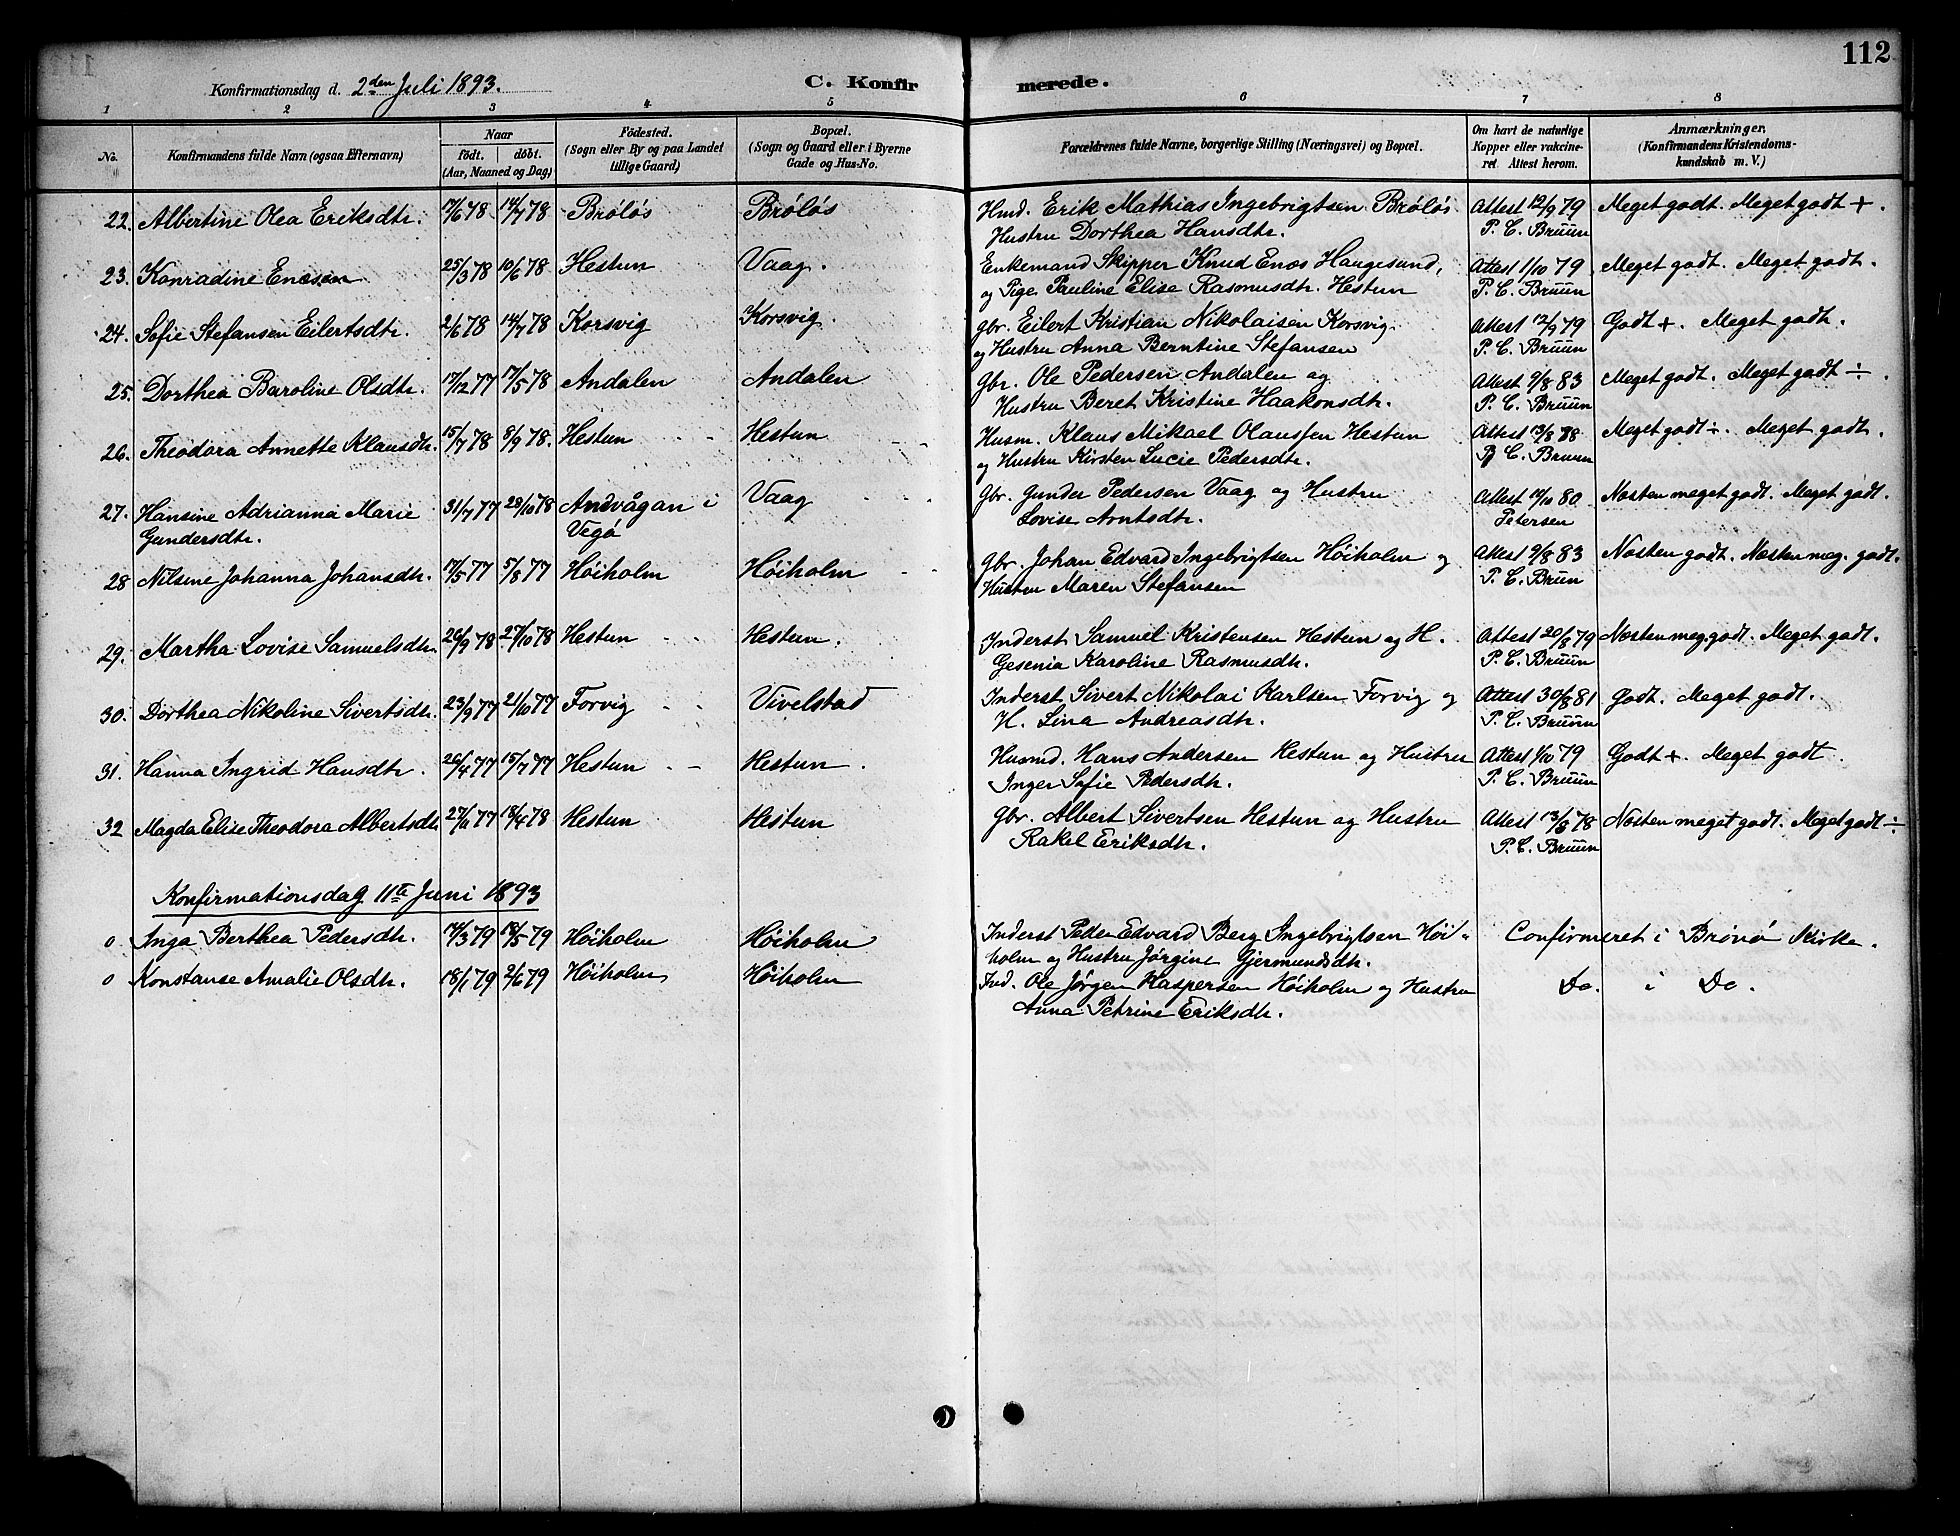 112
Konfirmationsdag d. 2den Juli 1893. C. Konfirmerede.
1 2 3 4 5 6 7 8
No. Konfirmandens fulde Navn (ogsaa Efternavn) Naar födt. döbt. (Aar, Maaned og Dag) Födested. (Sogn eller By og paa Landet tillige Gaard) Bopæl. (Sogn og Gaard eller i Byerne Gade og Hus-No. Forældrenes fulde Navne, borgerlige Stilling (Næringsvei) og Bopæl. Om havt de naturlige Kopper eller vakcineret. Attest herom. Anmærkninger. (Konfirmandens Kristendomskundskab m. V.)
22. Albertine Olea Eriksdtr. 17/6 78 14/7 78 Bröløs Bröløs Husmd. Erik Mathias Ingebrigtsen Bröløs Attest 12/9 79 Meget godt. Meget godt +.
Hustru Dorthea Hansdtr. P. C. Bruun
23. Konradine Enæsen 25/3 78 10/6 78 Hestun Vaag. Enkemand Skipper Knud Enæs Haugesund, Attest 1/10 79 Meget godt. Meget godt.
og Pige Pauline Elise Rasmusdtr. Hestun P. C. Bruun
24. Sofie Stefansen Eilertsdtr. 2/6 78 14/7 78 Korsvig Korsvig. Gbr. Eilert Kristian Nikolaisen Korsvig Attest 12/9 79 Godt +. Meget godt.
og Hustru Anna Berntine Stefansen P. C. Bruun
25. Dorthea Baroline Olsdtr. 17/12 77 17/5 78 Andalen Andalen Gbr. Ole Pedersen Andalen og Attest 9/8 83 Meget godt. Meget godt ÷.
Hustru Beret Kristine Haakonsdtr. P. C. Bruun
26. Theodora Annette Klausdtr. 15/7 78 8/9 78. Hestun Hestun Husm. Klaus Mikael Olaussen Hestun Attest 13/8 78 Meget godt ÷. Meget godt.
og Hustru Kirsten Lucie Pedersdtr. P. C. Bruun
27. Hansine Adrianna Marie 31/7 77 28/10 78 Andvågan i Vaag Gbr. Gunder Pedersen Vaag og Hustru Attest 17/10 80 Næsten meget godt. Meget godt.
Gundersdtr. Vegø Lovise Arntsdtr. Petersen
28 Nilsine Johanna Johansdtr. 17/5 77 5/8 77 Høiholm Høiholm Gbr. Johan Edvard Ingebrigtsen Høiholm og Attest 9/8 83 Næsten godt. Næsten meg. godt.
Hustru Maren Stefansen P. C. Bruun
29. Martha Lovise Samuelsdtr. 26/9 78 27/10 78 Hestun Hestun. Inderst Samuel Kristensen Hestun og H. Attest 20/8 79 Næsten meg. godt. Meget godt.
Gesenia Karoline Rasmusdtr. P. C. Bruun
30. Dorthea Nikoline Sivertsdtr. 23/9 77 21/10 77 Forvig Vivelstad Inderst Sivert Nikolai Karlsen Forvig og Attest 30/8 81 Godt. Meget godt.
H. Lina Andreasdtr. P. C. Bruun
31. Hanna Ingrid Hansdtr. 26/4 77 15/7 77 Hestun Hestun. Husmd. Hans Andersen Hestun og Hustru Attest 1/10 79 Godt +. Meget godt.
Inger Sofie Pedersdtr. P. C. Bruun
32 Magda Elise Theodora Albertsdtr 27/11 77 18/4 78 Hestun Hestun Gbr. Albert Sivertsen Hestun og Hustru Attest 13/8 78 Næsten meget godt. Meget godt ÷
Rakel Eriksdtr. P. C. Bruun
Konfirmationsdag 11te Juni 1893
0 Inga Berthea Pedersdtr. 17/3 79 18/5 79 Høiholm Høiholm Inderst Peder Edvard Berg Ingebrigtsen Høi- Confirmeret i Brønø Kirke.
holm og Hustru Jørgine Gjermundsdtr.
0 Konstanse Amalie Olsdtr. 18/1 79 2/6 79 Høiholm Høiholm Ind. Ole Jørgen Kaspersen Høiholm og Hustru Do. i Do.
Anna Petrine Eriksdtr.